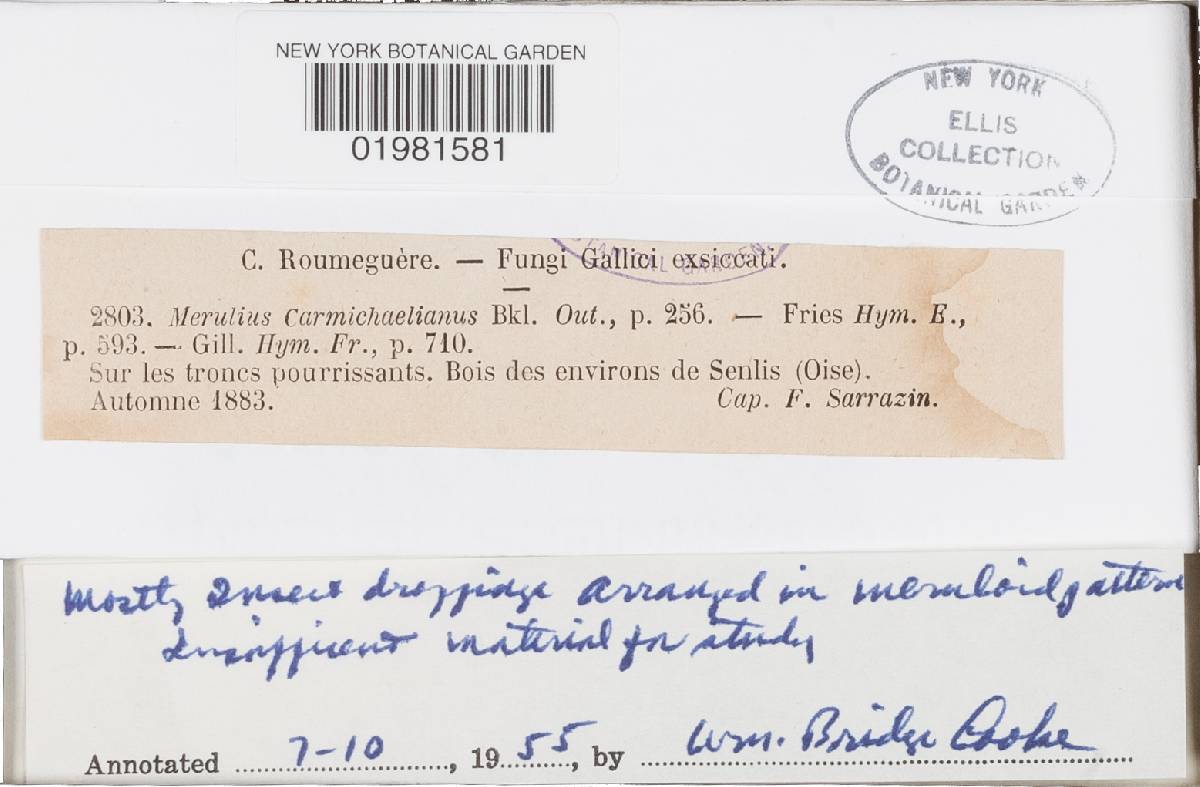 NEW YORK BOTANICAL GARDEN
01981581
NEW YORK
ELLIS
COLLECTION
BOTANICAL GARDEN
C. Roumeguère. — Fungi Gallici exsiccati.
2803. Merulius Carmichaelianus Bkl. Out., p. 256. — Fries Hym. E.,
p. 593. — Gill. Hym. Fr., p. 710.
Sur les troncs pourrissants. Bois des environs de Senlis (Oise).
Automne 1883. Cap. F. Sarrazin.
TANICAL GARDEN
Mostly Insect droppidgs arranged in meruloid pattern
Insufficient material for study
Annotated 7-10, 1955, by Wm. Bridge Cooke